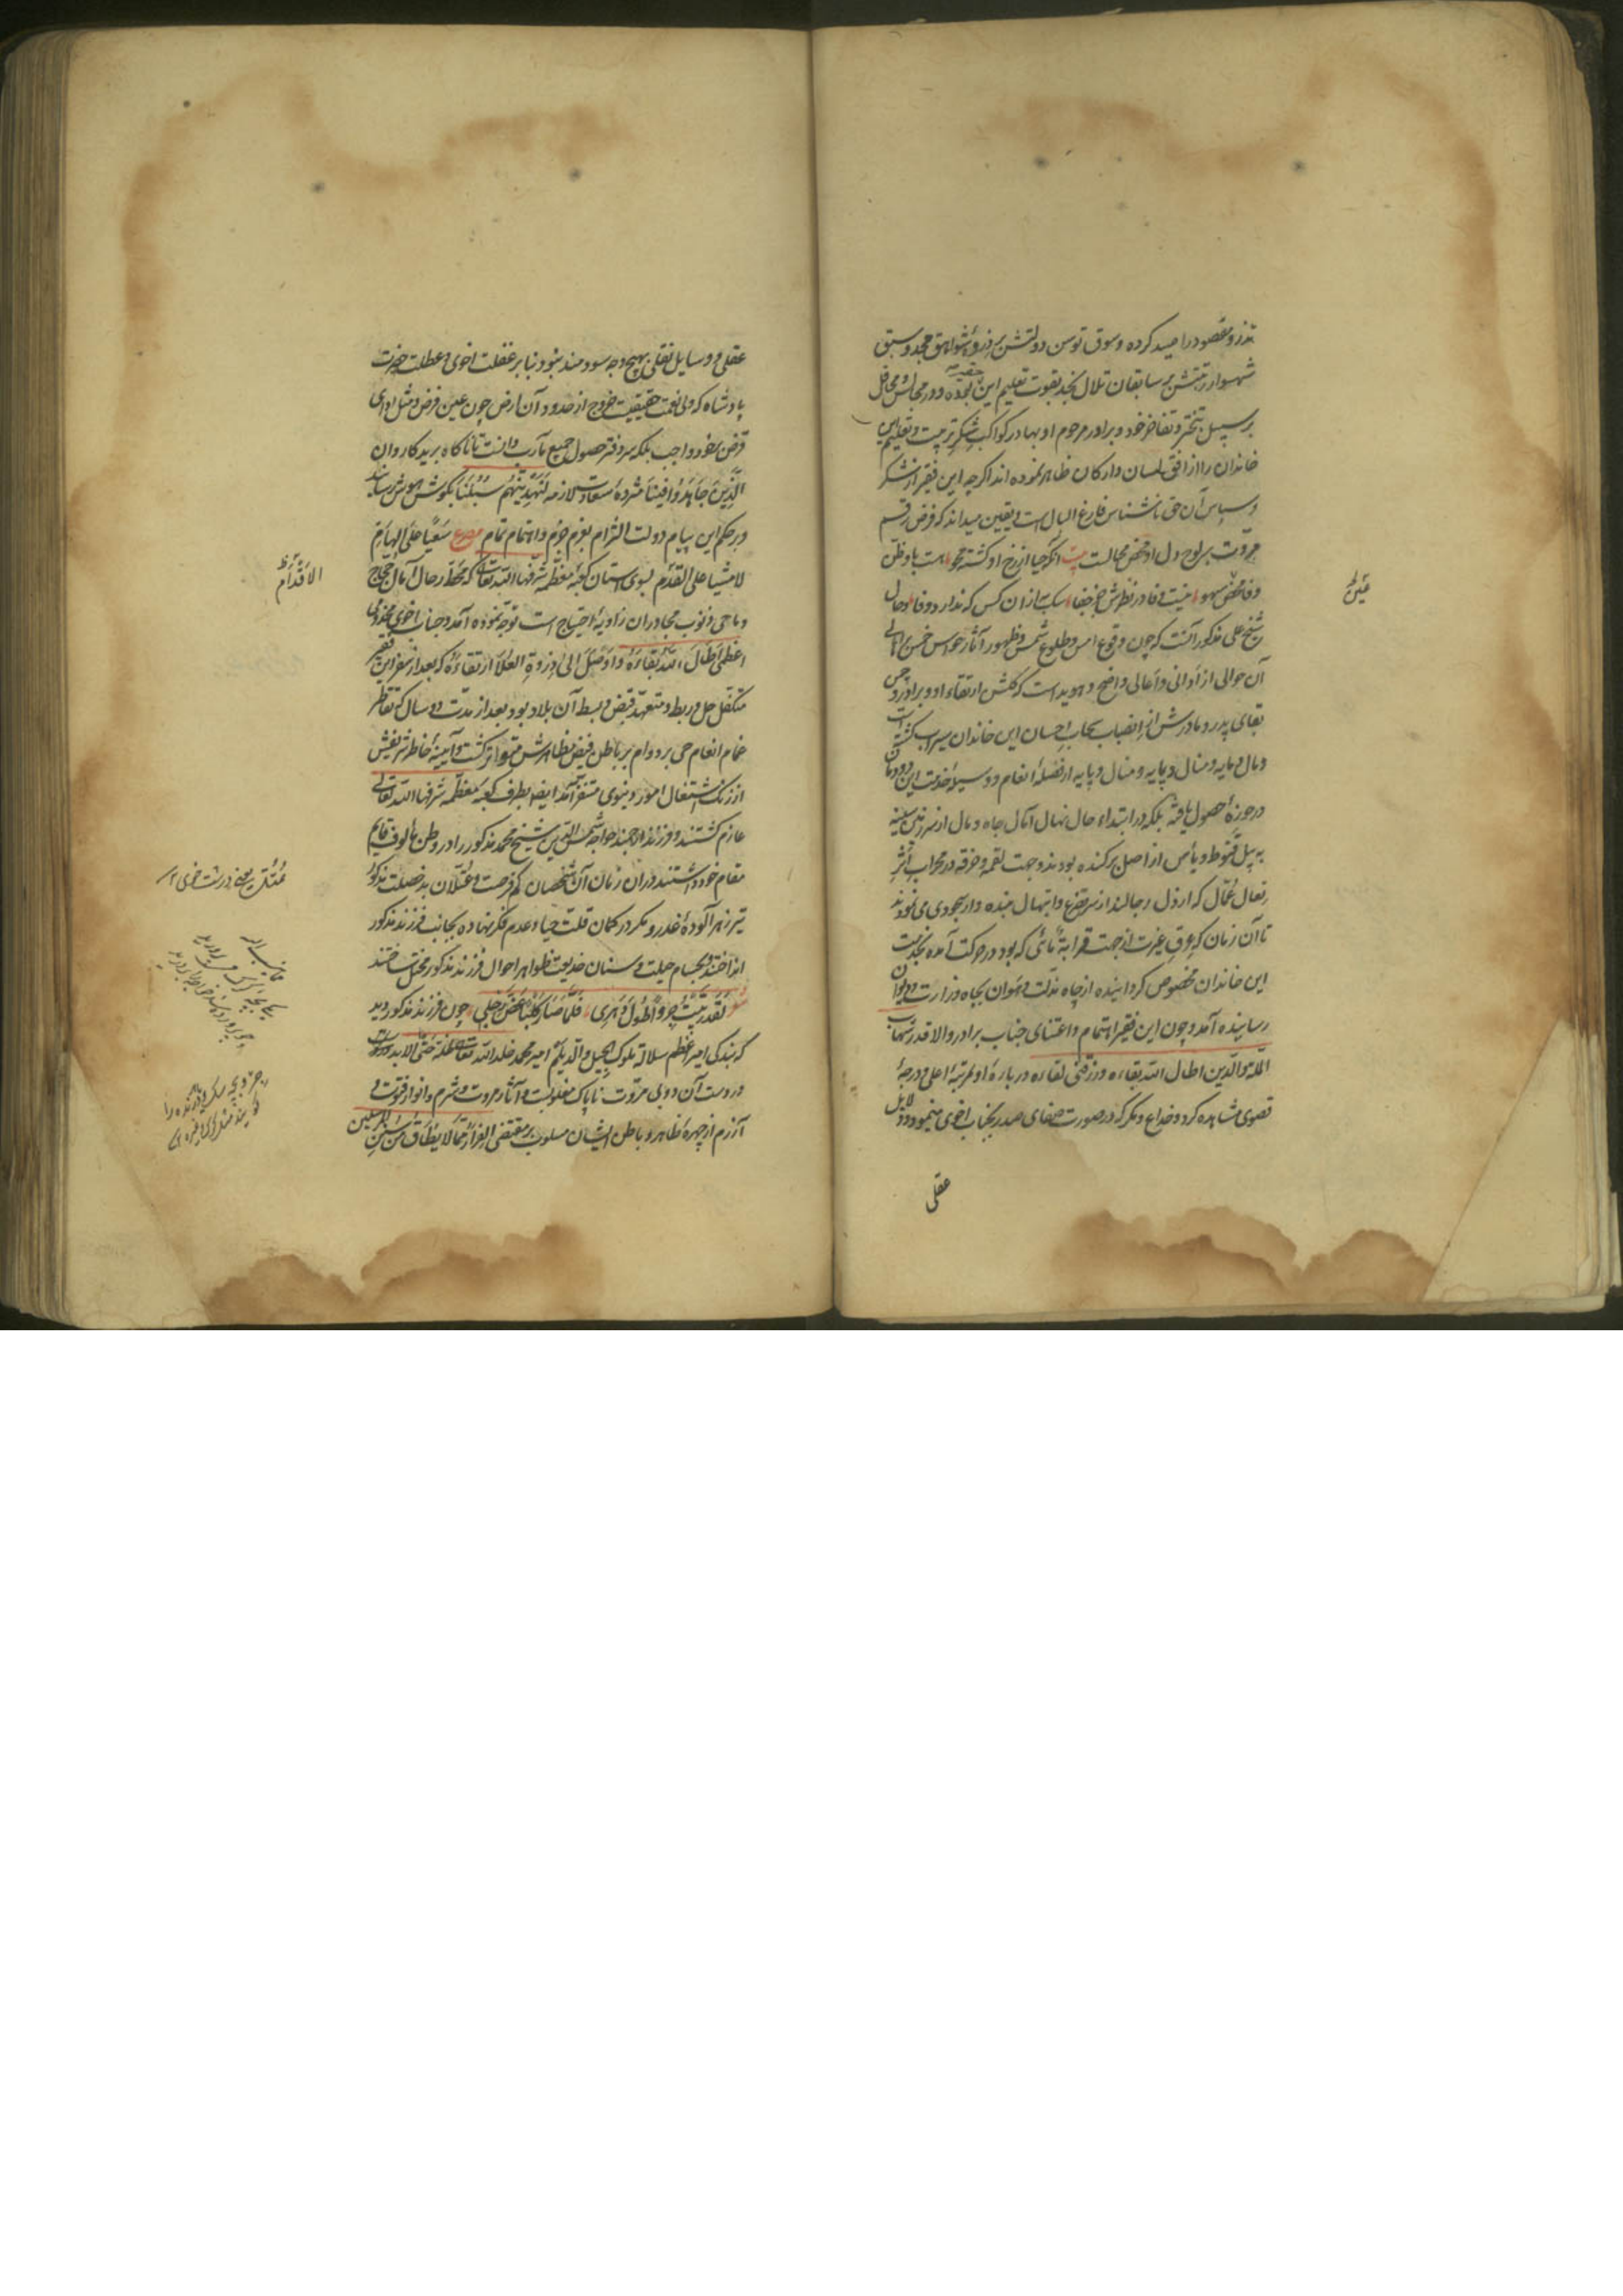 تذرو مقصود را صید کرده و سوق توسن دولتش بر ذروهٔ شواهق مجد و سبق
شهسوار رتبتش بر سابقان تلال نجد بقوت تعلیم این بوده و در مجالس و محافل
بر سبیل تبختر و تفاخر خود و برادر مرحوم او بهادر کواکب شکر تربیت و تعلیم این
خاندان را از افق لسان و ارکان ظاهر نموده اند اگرچه این فقیر از شکر
و سپاس آن حق ناشناس فارغ البال است و یقین میداند که فرض رقم
مروت بر لوح دل او محض محالست بیت آنکه حیا از رخ او گشته محو هست باو ظن
وفا محض سهو نیست وفا در نظرش جز جفا سگ به از آن کس که ندارد وفا و حال
شیخ علی مذکور آنست که چون وقوع امس و طلوع شمس و ظهور آثار حواس خمس بر اهالی
آن حوالی از ادانی و اعالی واضح و هویداست که گلشن ارتقاء او و برادر و چمن
بقای پدر و مادرش از انصباب سحاب احسان این خاندان سیراب گشته است
و مال و مایه و منال و پایه از فضلهٔ انعام و وسیلهٔ خدمت این دودمان
در حوزهٔ حصول یافته بلکه در ابتداء حال نهال آمال جاه و مال از سرزمین سینه
به بیل قنوط و یأس از اصل برکنده بودند و جهت لقمه و خرقه در محراب اثر
نعال عمال که ارذل رجالند از سر تضرع و ابتهال بنده وار سجود می نمودند
تا آن زمان که عرق غیرت از جهت قرابة مائی که بود در حرکت آمده بخدمت
این خاندان مخصوص گردانیده از چاه مذلت و هوان بجاه وزارت و دیوان
رسانیده آمد و چون این فقیر اهتمام و اعتنای جناب برادر والا قدر شهاب
الملة و الدین اطال الله بقاءه و رزقنی لقاءه دربارهٔ او بمرتبهٔ اعلی و درجهٔ
قصوی مشاهده کرد و خداع و مکر که در صورت صفای صدر بجناب اخوی مینمود و دلایل
عقلی
عقلی و وسایل نقلی بهیچ وجه سودمند نبود بنا بر غفلت اخوی و عطلت حضرت
پادشاه که ولی نعمت حقیقیست خروج از حدود آن ارض چون عین فرض و مثل ادای
قرض بر خود واجب بلکه سر دفتر حصول جمیع مآرب دانست تا ناگاه برید کاروان
الذین جاهدوا فینا مژدهٔ سعادت لازمه لنهدینهم سبلنا بگوش هوش رساند
و بر حکم این پیام دولت التزام بعزم جزم و اهتمام تمام مصرع سعیا علی الهام
لا مشیا علی القدم بسوی آستان کعبهٔ معظمه شرفها الله تعالی که محط رحال آمال حجاج
و ماحی ذنوب مجاوران زاویهٔ احتیاج است توجه نموده آمد و جناب اخوی مخدومی
اعظمی اطال الله بقاءه و اوصل الی ذروة العلا ارتقاءه که بعد از سفر این فقیر
متکفل حل و ربط و متعهد قبض و بسط آن بلاد بود بعد از مدت دو سال که تقاطر
غمام انعام حی بر دوام بر باطن فیض مظاهرش متواتر گشت و آیینهٔ خاطر شریفش
از زنگ اشتغال امور دنیوی متنفر آمد ایضا بطرف کعبهٔ معظمه شرفها الله تعالی
عازم گشتند و فرزند ارجمند خواجه شمس الدین شیخ محمد مذکور را در وطن مألوف قایم
مقام خود داشتند در آن زمان آن شخصان کم فرصت و عتلان بد خصلت مذکور
تیر زهر آلودهٔ غدر و مکر در کمان قلت حیا و عدم فکر نهاده بجانب فرزند مذکور
انداختند و بحسام حیلت و سنان خدیعت ظواهر احوال فرزند مذکور مختل ساختند
شعر لقد ربیت جروا طول دهری فلما صار کلبا عض رجلی چون فرزند مذکور دید
که بندگی امیر اعظم سلالة ملوک الجیل و الدیلم امیر محمد خلد الله تعالی ظله حتی الابد
در دست آن دو بی مروت ناپاک مغلوبست و آثار مروت و شرم و انوار فتوت و
آزرم از چهرهٔ ظاهر و باطن ایشان مسلوب بر مقتضی الفرار مما لا یطاق من سنن المرسلین
الاقدام